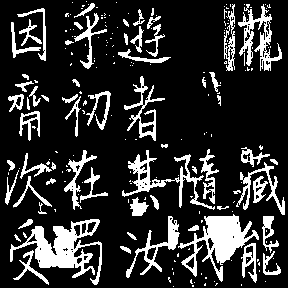 因乎遊花
齊初者
次在其隨藏
受蜀汝我能